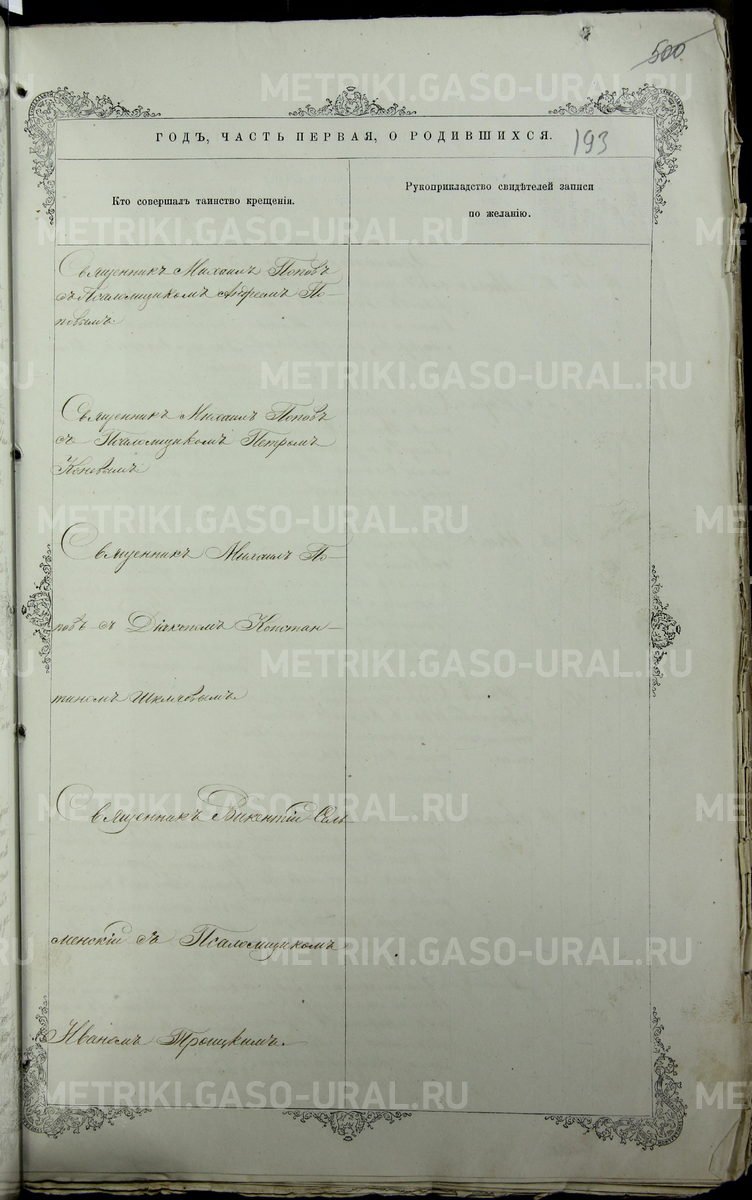 500
193
ГОДЪ, ЧАСТЬ ПЕРВАЯ, О РОДИВШИХСЯ.
Кто совершалъ таинство крещенія.
Рукоприкладство свидѣтелей записи
по желанію.
Священникъ Михаилъ Поповъ
съ Псаломщикомъ Андреемъ По-
повымъ.
Священникъ Михаилъ Поповъ
съ Псаломщикомъ Петромъ
Священникъ Михаилъ По-
повъ съ Діакономъ Констан-
тиномъ Шкляевымъ.
Священникъ Викентій Сель
менскій съ Псаломщикомъ
Иваномъ Троицкимъ.
METRIKI.GASO-URAL.RU